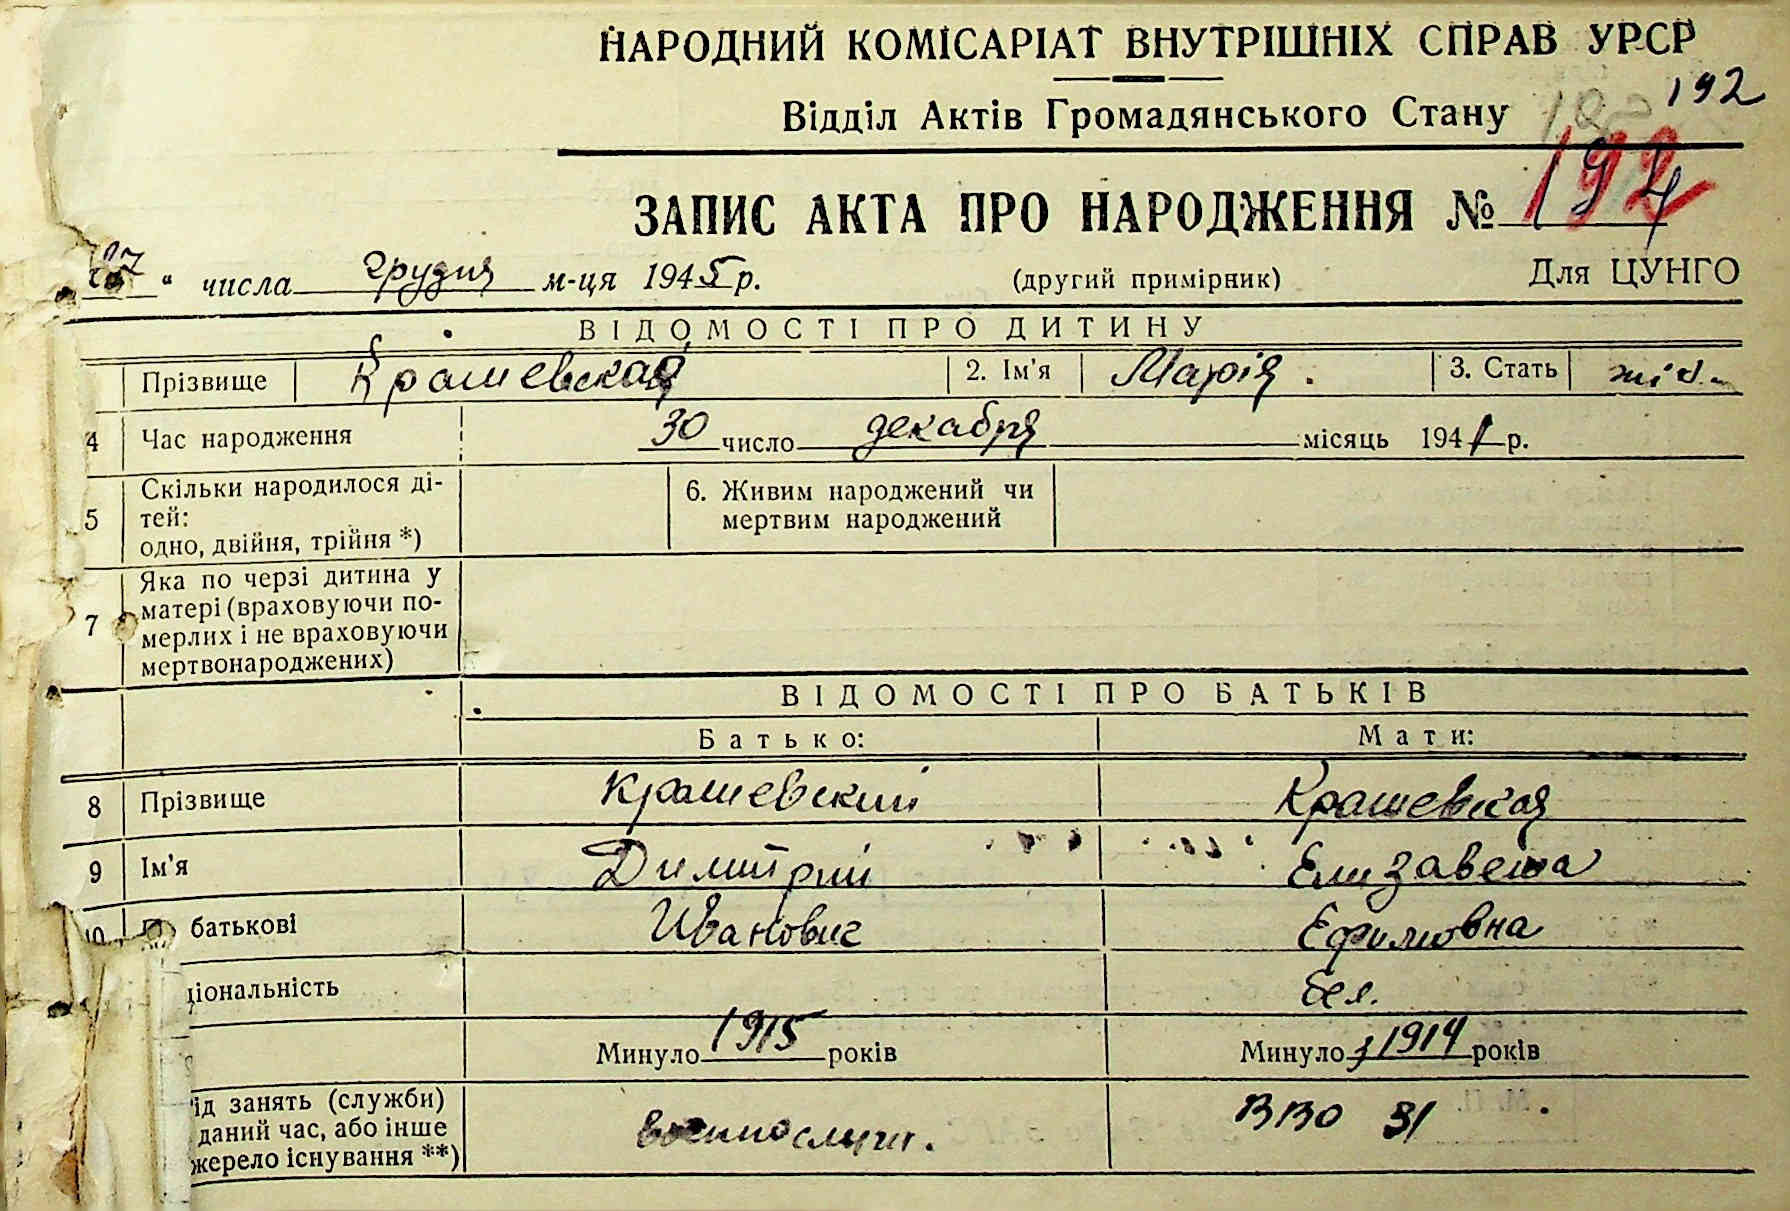 НАРОДНИЙ КОМІСАРІАТ ВНУТРІШНІХ СПРАВ УРСР
192
Відділ Актів Громадянського Стану
ЗАПИС АКТА ПРО НАРОДЖЕННЯ № 192
27 " числа грудня м-ця 1945 р. (другий примірник) Для ЦУНГО
ВІДОМОСТІ ПРО ДИТИНУ
Прізвище Крашевская 2. Ім'я Марія. 3. Стать жін.
4 Час народження 30 число декабря місяць 1941 р.
5 Скільки народилося ді-
тей:
одно, двійня, трійня *)
6. Живим народжений чи
мертвим народжений
7 Яка по черзі дитина у
матері (враховуючи по-
мерлих і не враховуючи
мертвонароджених)
ВІДОМОСТІ ПРО БАТЬКІВ
Батько: Мати:
8 Прізвище Крашевский Крашевская
9 Ім'я Димитрий Елизавета
10 По батькові Иванович Ефимовна
ціональність бел.
Минуло 1915 років Минуло з 1914 років
ід занять (служби)
даний час, або інше
жерело існування **)
военнослуж. ВВО 31